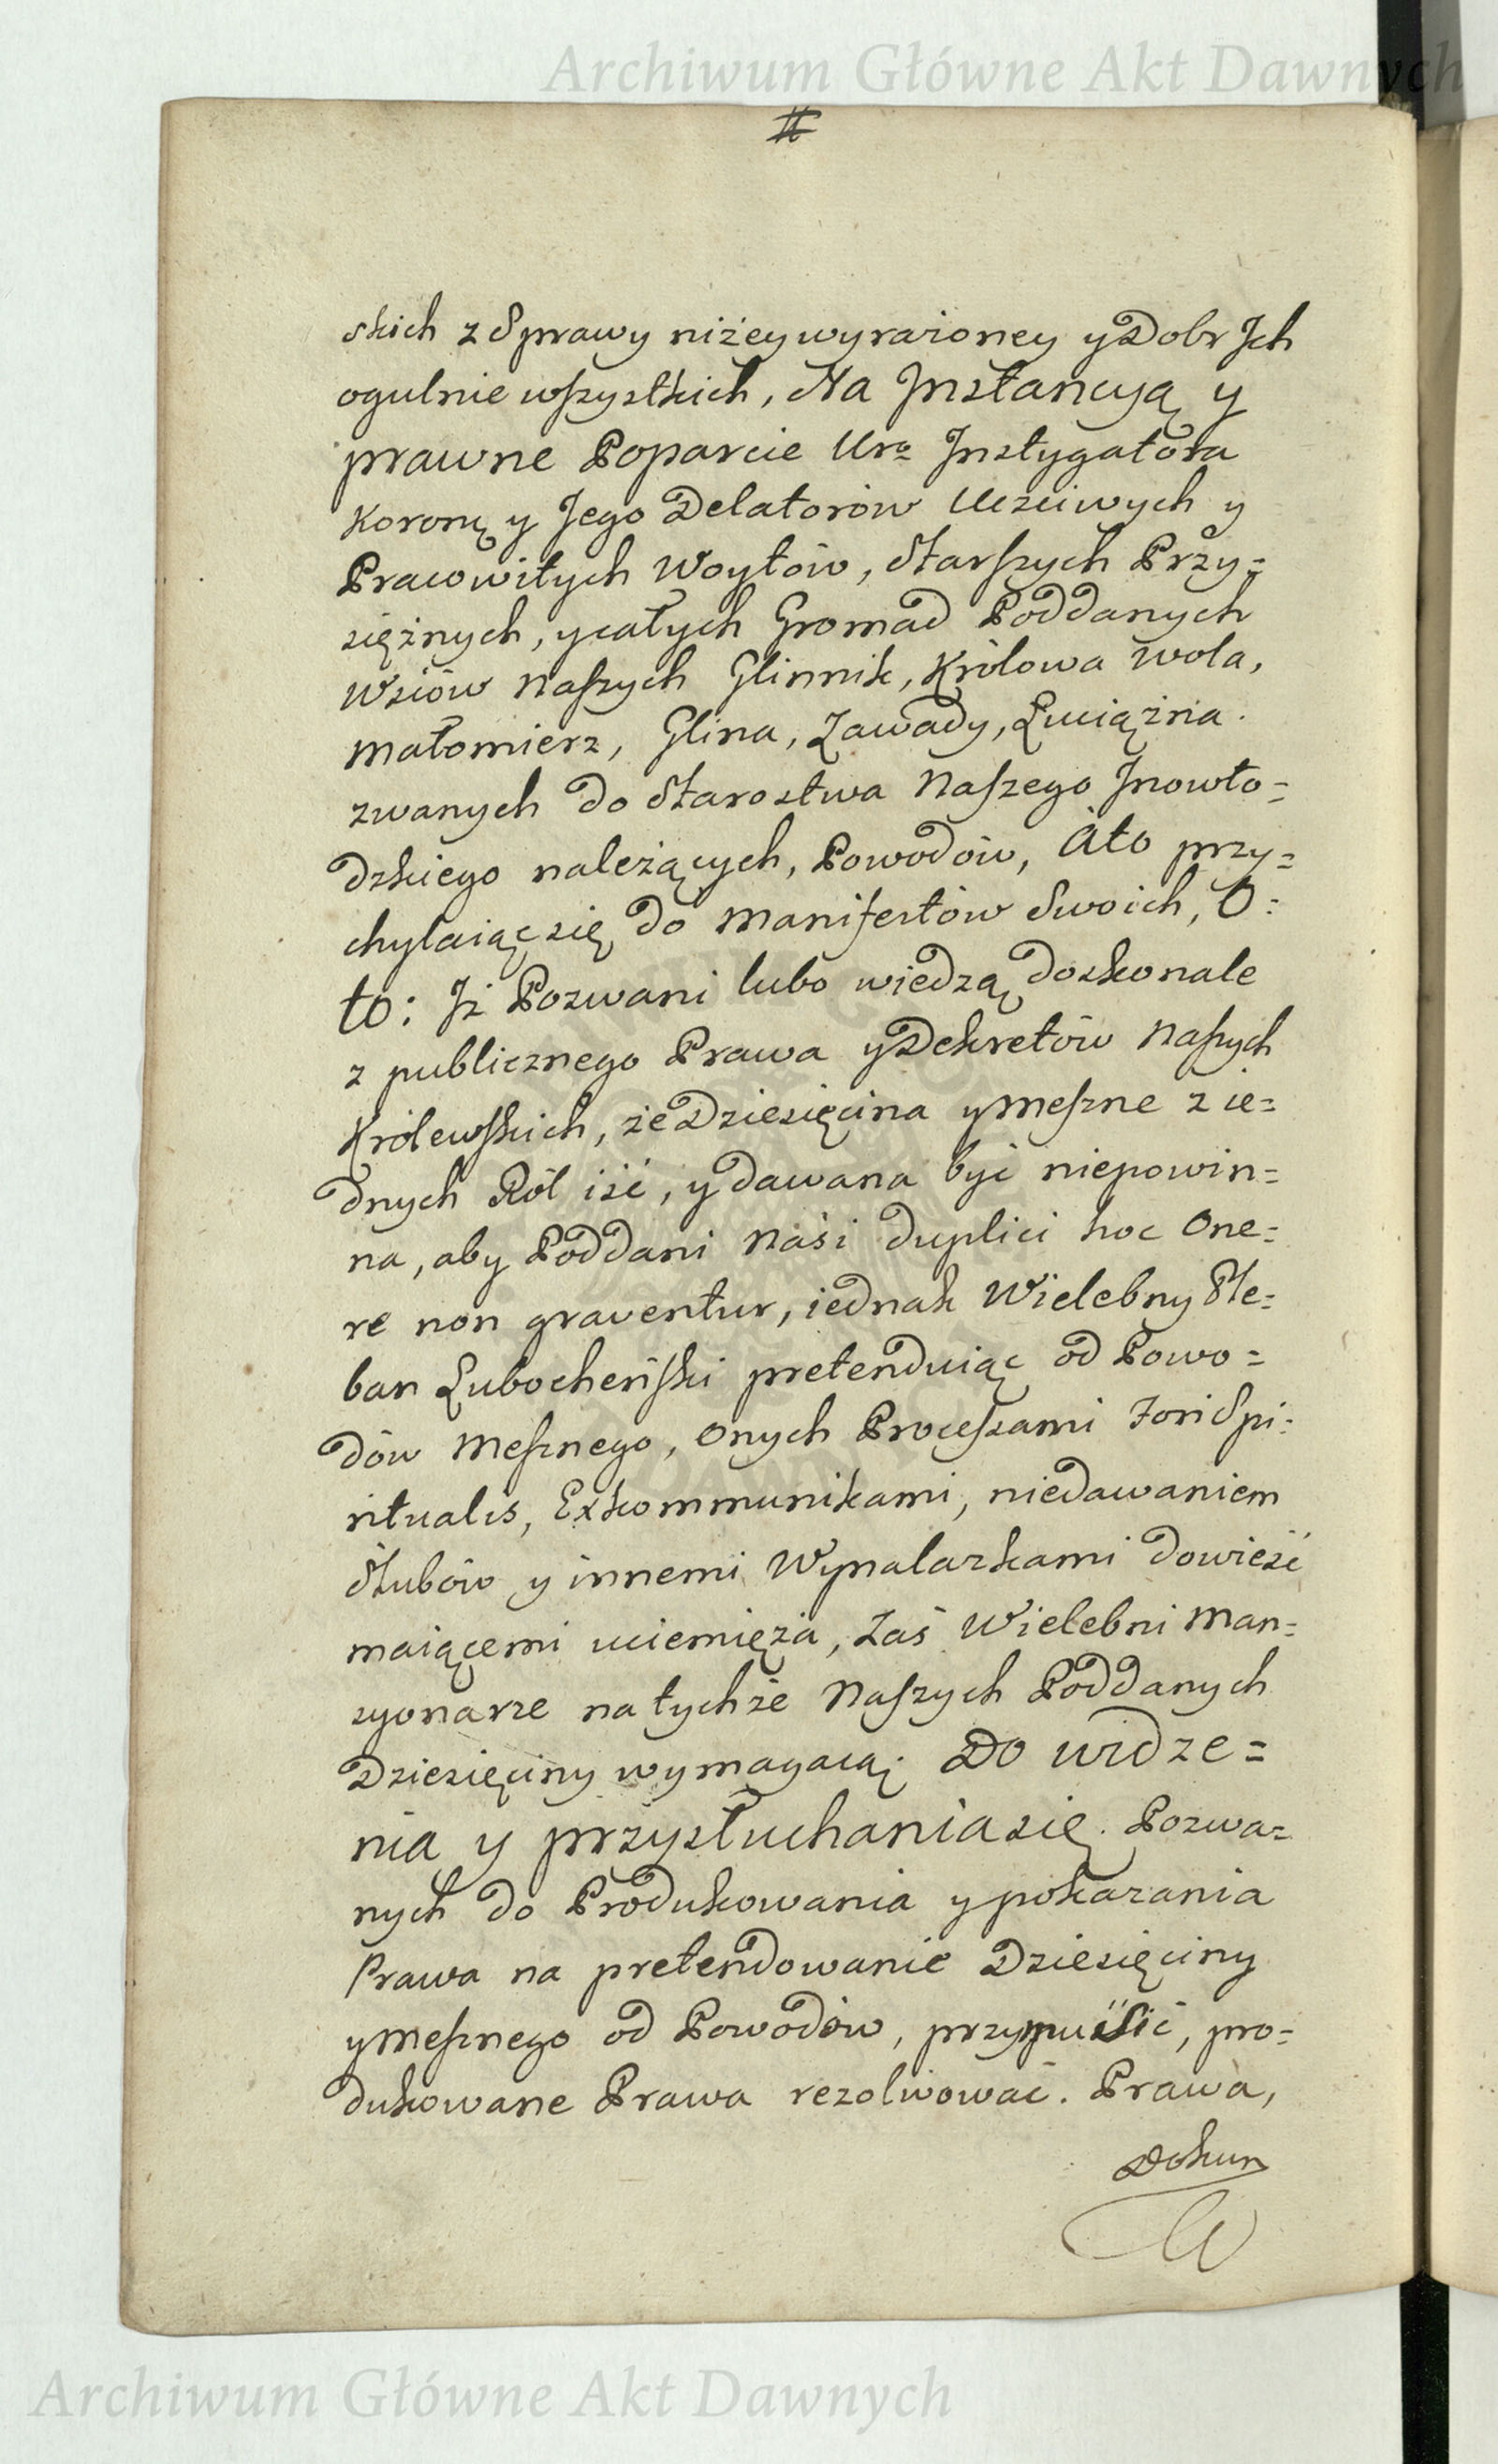 Archiwum Główne Akt Dawnych
#
skich z Sprawy niżey wyrażoney y Dobr Jch
ogulnie wszystkich, Na Jnstancyą y
prawne Poparcie Urº Jnstygatora
Koronę y Jego Delatorow Uczciwych y
Pracowitych Woytów, Starszych Przy=
siężnych, y całych Gromad Poddanych
Wsiów Naszych Glinnik, Królowa Wola,
Małomierz, Glina, Zawady, Luciążna
zwanych do Starostwa Naszego Jnowło=
dzkiego należących, Powodów, Ato przy=
chylaiąc się do Manifestów Swoich, O:
to: Jż Pozwani lubo wiedzą doskonale
z publicznego Prawa y Dekretów Naszych
Królewskich, że Dziesięcina y Meszne z ie=
dnych Ról iść, y dawana być niepowin=
na, aby Poddani Nasi duplici hoc One=
re non graventur, iednak Wielebny Ple=
ban Lubocheński pretenduiąc od Powo=
dów Mesznego, Onych Processami Fori Spi=
ritualis, Exkommunikami, niedawaniem
Slubów y innemi Wynalazkami dowieść
maiącemi uciemięża, Zaś Wielebni Man=
syonarze na tychże Naszych Poddanych
Dziesięciny wymagaią; Do widze=
nia y przysłuchania się Pozwa=
nych do Produkowania y pokazania
Prawa na pretendowanie Dziesięciny
y Mesznego od Powodów, przypuścić, pro=
dukowane Prawa rezolwować. Prawa,
Dokum
Archiwum Główne Akt Dawnych